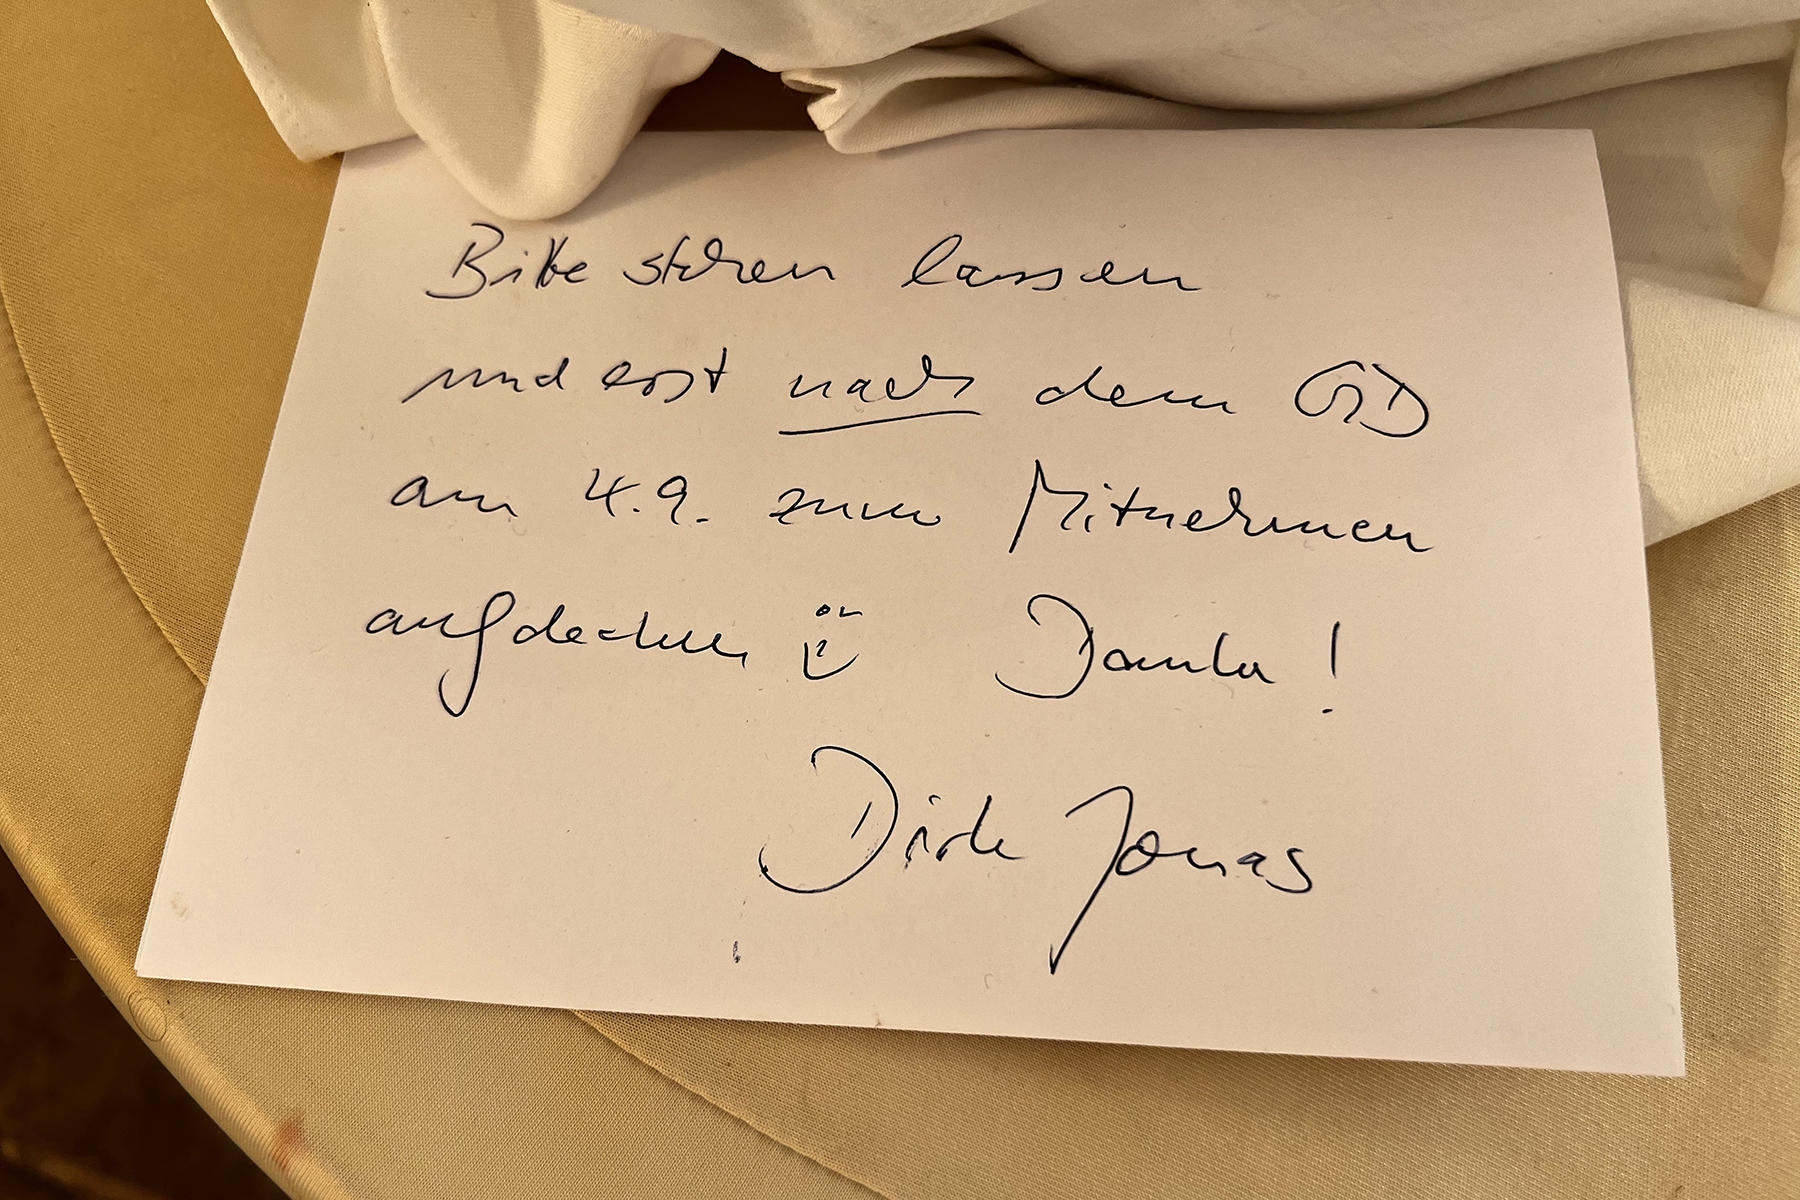 Bitte stehen lassen
und erst nach dem GD
am 4.9. zum Mitnehmen
aufdecken Danke!
Dirk Jonas